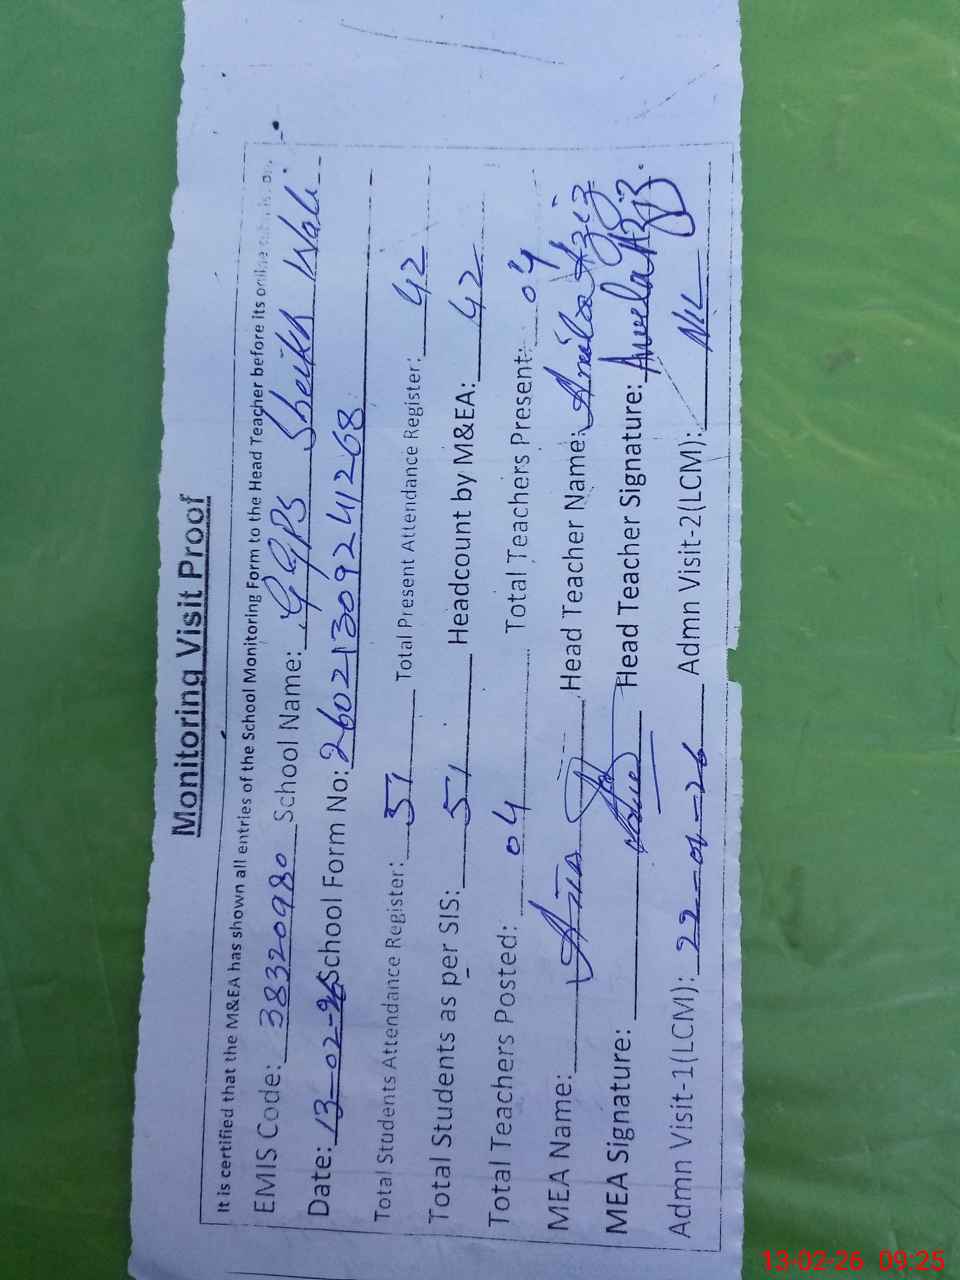 Monitoring Visit Proof
It is certified that the M&EA has shown all entries of the School Monitoring Form to the Head Teacher before its online
EMIS Code: 38320980 School Name: GGPS Sheikh Wali
Date: 13-02-26 School Form No: 260213092411268
Total Students Attendance Register: 51 Total Present Attendance Register: 42
Total Students as per SIS: 51 Headcount by M&EA: 42
Total Teachers Posted: 04 Total Teachers Present: 04
MEA Name: Head Teacher Name: Anila Aziz
MEA Signature: Head Teacher Signature:
Admn Visit-1(LCM): 22-01-26 Admn Visit-2(LCM): NIL
13-02-26 09:25